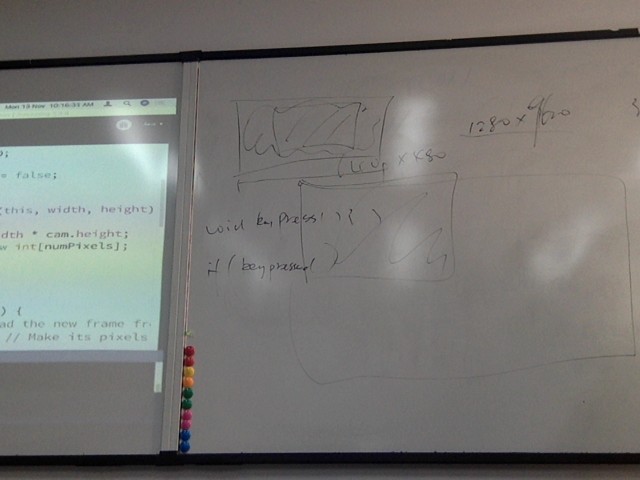 Mon 13 Nov 10:16:31 AM
);
= false;
(this, width, height)
dth * cam.height;
w int[numPixels];
) {
ad the new frame fr
// Make its pixels
1280 x 960
x 480
void keyPress( ) { }
if ( keypressed )